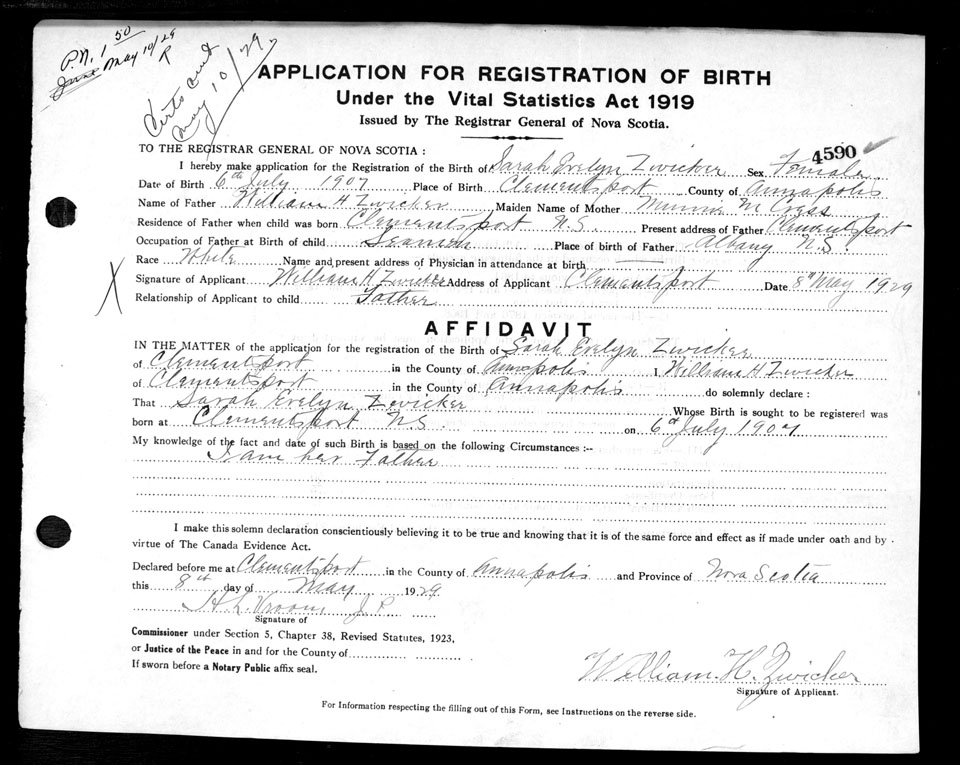 P.N. 1 50
June May 10/29
R
Certs cent
May 10/29.
APPLICATION FOR REGISTRATION OF BIRTH
Under the Vital Statistics Act 1919
Issued by The Registrar General of Nova Scotia.
TO THE REGISTRAR GENERAL OF NOVA SCOTIA :
4590
I hereby make application for the Registration of the Birth of Sarah Evelyn Zwicker Sex Female
Date of Birth 6th July 1907 Place of Birth Clementsport County of Annapolis
Name of Father William H Zwicker Maiden Name of Mother Minnie M Cress
Residence of Father when child was born Clementsport N.S. Present address of Father Clementsport
Occupation of Father at Birth of child Seamen Place of birth of Father Albany N.S.
Race White Name and present address of Physician in attendance at birth
X
Signature of Applicant William H Zwicker Address of Applicant Clementsport Date 8th May 1929
Relationship of Applicant to child Father
AFFIDAVIT
IN THE MATTER of the application for the registration of the Birth of Sarah Evelyn Zwicker
of Clementsport in the County of Annapolis I. William H Zwicker
of Clementsport in the County of Annapolis do solemnly declare :
That Sarah Evelyn Zwicker Whose Birth is sought to be registered was
born at Clementsport N.S. on 6th July 1907
My knowledge of the fact and date of such Birth is based on the following Circumstances :—
I am her Father
I make this solemn declaration conscientiously believing it to be true and knowing that it is of the same force and effect as if made under oath and by
virtue of The Canada Evidence Act.
Declared before me at Clementsport in the County of Annapolis and Province of Nova Scotia
this 8th day of May 1929
H. L. Vroom J.P.
Signature of
Commissioner under Section 5, Chapter 38, Revised Statutes, 1923,
or Justice of the Peace in and for the County of
If sworn before a Notary Public affix seal.
William. H. Zwicker
Signature of Applicant.
For Information respecting the filling out of this Form, see Instructions on the reverse side.